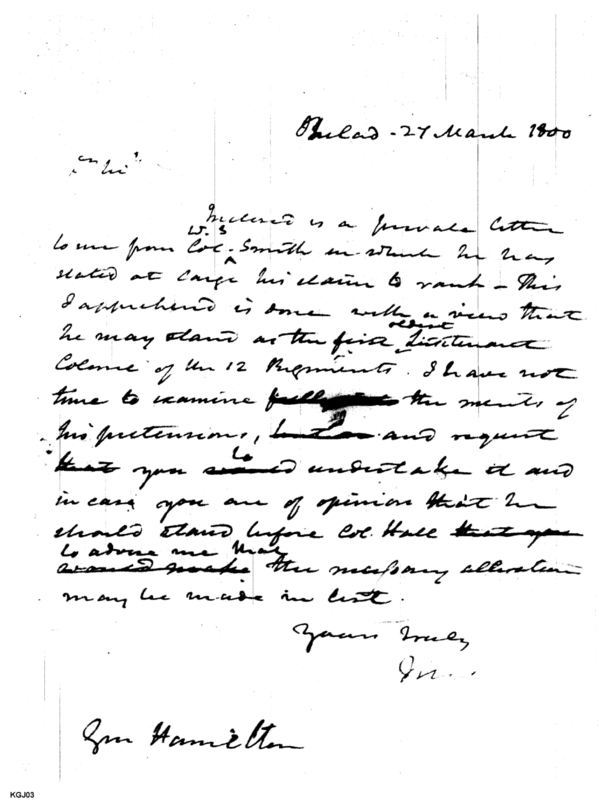 Philad - 27 March 1800
Sir
Inclosed is a private letter
W. S
to me from Col. Smith in which he has
stated at large his claim to rank - This
I apprehend is done with a view that
oldest
he may stand as the first Lieutenant
Colonel of the 12 Regiments. I have not
time to examine fully the merits of
his pretensions, and request
to
that you undertake it and
in case you are of opinion that he
should stand before Col. Hall that you
to advise me that
would make the necessary alteration
may be made in list.
Yours truly
Gen Hamilton
KGJ03